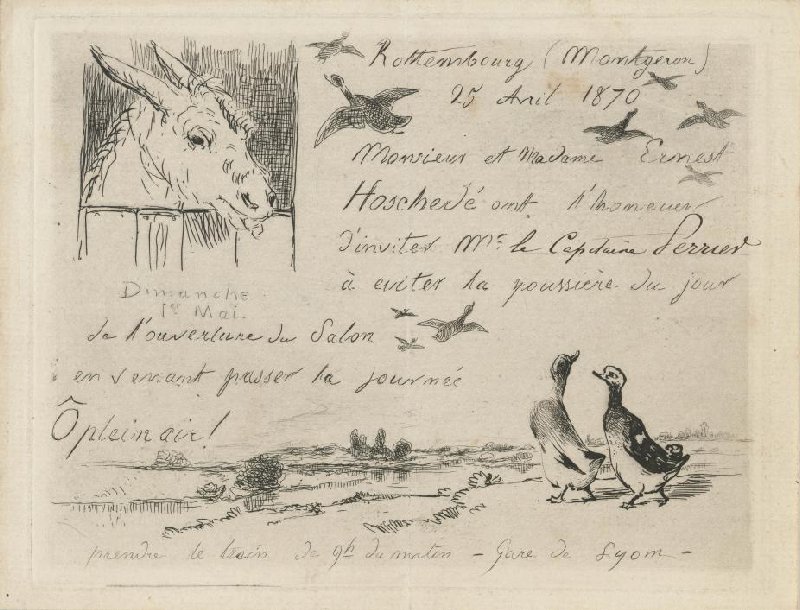 Rottembourg (Montgeron)
25 Avril 1870
Monsieur et Madame Ernest
Hoschedé ont l'honneur
d'inviter Mr le Capitaine Perrier
à eviter la poussière du jour
Dimanche
1er Mai.
de l'ouverture du Salon
en venant passer la journée
Ô plein air!
prendre le train de 9h du matin - Gare de Lyon -